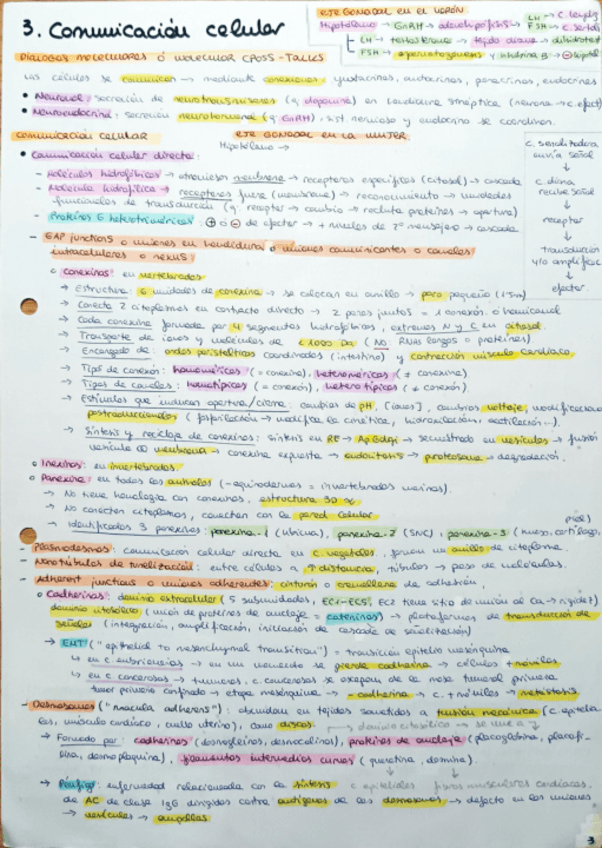 3. Comunicación celular
EJE GONADAL EN EL VARÓN
Hipotálamo → GnRH → adenohipófisis → LH → C. Leydig
FSH → C. Sertoli
LH → testosterona → tejido diana → dihidrotest
FSH → espermatogénesis y inhibina B → ⊖ hipotál
DIÁLOGOS MOLECULARES Ó MOLECULAR CROSS-TALKS
Las células se comunican → mediante conexiones yuxtacrinas, autocrinas, paracrinas, endocrinas
• Neuronal: secreción de neurotransmisores (ej dopamina) en hendidura sináptica (neurona → c. efect)
• Neuroendocrina: secreción neurohormonal (ej GnRH), sist. nervioso y endocrino se coordinan.
COMUNICACIÓN CELULAR
EJE GONADAL EN LA MUJER
Hipotálamo →
• Comunicación celular directa:
- Moléculas hidrofóbicas → atraviesan membrana → receptores específicos (citosol) → cascada
- Molécula hidrofílica → receptores fuera (membrana) → reconocimiento → unidades
funcionales de transducción (ej: receptor → cambio → recluta proteínes → apertura)
- Proteínas G heterotriméricas: ⊕ ó ⊖ de efector → + niveles de 2º mensajero → cascada
c. señalizadora
envía señal
↓
c. diana
recibe señal
↓
receptor
↓
transducción
y/o amplific
↓
efector
- GAP junctions o uniones en hendidura o uniones comunicantes o canales
intracelulares o nexus
○ Conexinas: en vertebrados
→ Estructura: 6 unidades de conexina → se colocan en anillo → poro pequeño (1'5nm)
→ Conecta 2 citoplasmas en contacto directo → 2 poros juntos = 1 conexón ó hemicanal
→ Cada conexina formada por 4 segmentos hidrofóbicos, extremos N y C en citosol.
→ Transporte de iones y moléculas de < 1000 Da (NO RNAs largos o proteínas)
→ Encargado de: ondas peristálticas coordinadas (intestino) y contracción músculo cardíaco
→ Tipos de conexón: homoméricas (= conexina), heteroméricas (≠ conexina)
→ Tipos de canales: homotípicas (= conexón), heterotípicas (≠ conexón)
→ Estímulos que inducen apertura/cierre: cambios de pH, [iones], cambios voltaje, modificaciones
postraduccionales (fosforilación → modifica la cinética, hidroxilación, acetilación...).
→ Síntesis y reciclaje de conexinas: síntesis en RE → Ap. Golgi → secuestrado en vesículas → fusión
vesícula ⊕ membrana → conexina expuesta → endocitosis → proteasoma → degradación.
○ Inexinas: en invertebrados.
○ Panexina: en todos los animales (- equinodermos = invertebrados marinos).
→ No tiene homología con conexinas, estructura 3D sí
→ No conecten citoplasmas, conectan con la pared celular
→ Identificadas 3 panexinas: panexina-1 (ubicua), panexina-2 (SNC), panexina-3 (hueso, cartílago, piel)
- Plasmodesmos: comunicación celular directa en c. vegetales, forman un anillo de citoplasma.
- Nanotúbulos de tunelización: entre células a ↑ distancia, túbulos → paso de moléculas.
- Adherent junctions o uniones adherentes: cinturón o cremallera de adhesión.
○ Cadherinas: dominio extracelular (5 subunidades, EC1-EC5, EC2 tiene sitio de unión al Ca → rigidez)
dominio citosólico (unión de proteínas de anclaje = cateninas) → plataformas de transducción de
señales (integración, amplificación, iniciación de cascada de señalización)
→ EMT ("epithelial to mesenchymal transition") = transición epitelio mesénquima
↳ en c. embrionarias → en un momento se pierde cadherina → células + móviles
↳ en c. cancerosas → tumores, c. cancerosas se escapan de la masa tumoral primera
tumor primario confinado → etapa mesénquima → - cadherina → c. + móviles → metástasis
- Desmosomas ("macula adherens"): abundan en tejidos sometidos a tensión mecánica (c. epitelia
les, músculo cardíaco, cuello uterino), como discos.
→ dominio citosólico → se une a
→ Formado por: cadherinas (desmogleínas, desmocolinas), proteínas de anclaje (placoglobina, placofi-
lina, desmoplaquina), filamentos intermedios curvos (queratina, desmina).
c. epiteliales
fibras musculares cardíacas
→ Pénfigo: enfermedad relacionada con la síntesis
de AC de clase IgG dirigidos contra antígenos de los desmosomas → defecto en las uniones
→ vesículas → ampollas
3